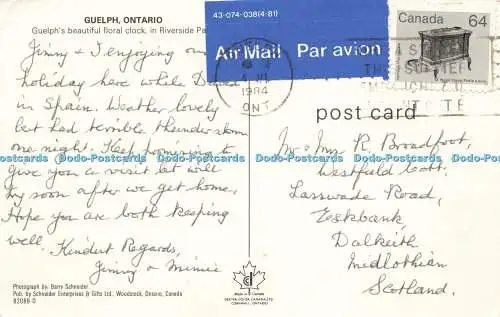 GUELPH, ONTARIO
Guelph's beautiful floral clock, in Riverside Pa
43-074-038(4-81)
Air Mail Par avion
Canada 64
1984
ONT
Jimmy & I enjoying our
holiday here while David
in Spain. Weather lovely
but had terrible thunder storm
one night. Keep promising to
give you a visit but will
try soon after we get home.
Hope you are both keeping
well. Kindest Regards,
Jimmy & Minnie
post card
Mr & Mrs R. Broadfoot,
Westfield Cott.
Lasswade Road,
Eskbank
Dalkeith
Midlothian
Scotland.
Dodo-Postcards Dodo-Postcards Dodo-Postcards Dodo-Postcards Dodo-Postcards
Photograph by: Barry Schneider
Pub. by Schneider Enterprises & Gifts Ltd., Woodstock, Ontario, Canada
82088-D
Made in Canada
DEXTER COLOR CANADA LTD.
CORNWALL, ONTARIO